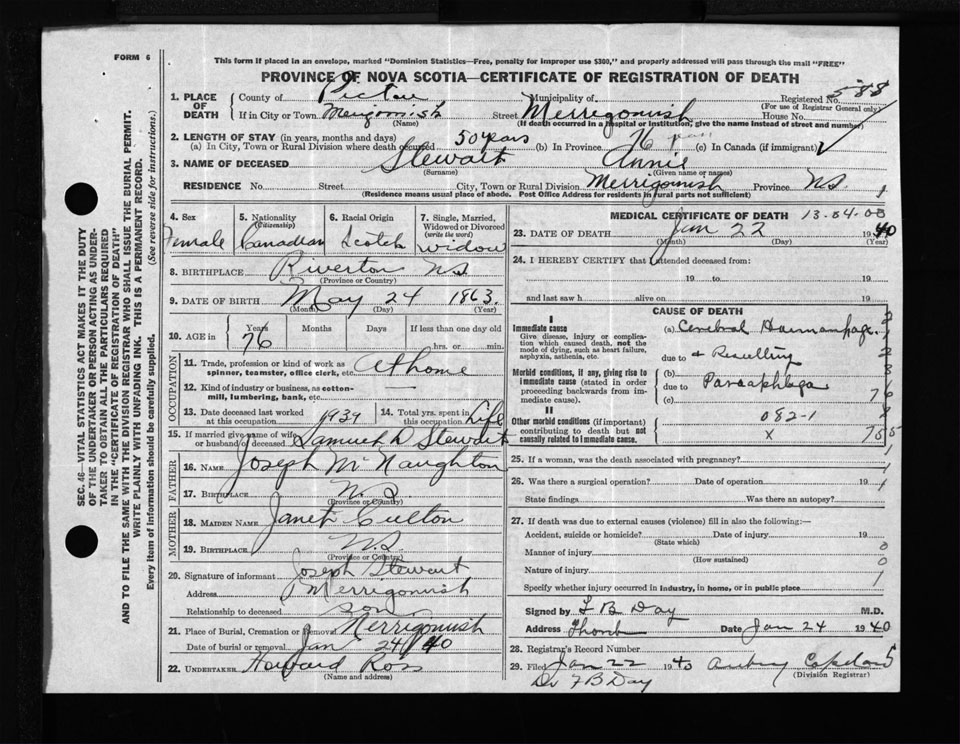 FORM 6
This form if placed in an envelope, marked "Dominion Statistics—Free, penalty for improper use $300," and properly addressed will pass through the mail "FREE"
PROVINCE OF NOVA SCOTIA—CERTIFICATE OF REGISTRATION OF DEATH
1. PLACE OF DEATH County of Pictou Municipality of Registered No. 588
(For use of Registrar General only)
If in City or Town Merigomish Street Merrigomish House No.
(Name) (If death occurred in a hospital or institution, give the name instead of street and number)
2. LENGTH OF STAY (in years, months and days)
(a) In City, Town or Rural Division where death occurred 50 years (b) In Province 76 years (c) In Canada (if immigrant)
3. NAME OF DECEASED Stewart Annie
(Surname) (Given name or names)
RESIDENCE No. Street City, Town or Rural Division Merrigomish Province N.S. 1
(Residence means usual place of abode. Post Office Address for residents in rural parts not sufficient)
4. Sex Female
5. Nationality (Citizenship) Canadian
6. Racial Origin Scotch
7. Single, Married, Widowed or Divorced (write the word) Widow
8. BIRTHPLACE Riverton N.S.
(Province or Country)
9. DATE OF BIRTH May 24 1863
(Month) (Day) (Year)
10. AGE in Years 76 Months Days If less than one day old
hrs. or min.
OCCUPATION
11. Trade, profession or kind of work as spinner, teamster, office clerk, etc. At home
12. Kind of industry or business, as cotton-mill, lumbering, bank, etc
13. Date deceased last worked at this occupation 1939 14. Total yrs. spent in this occupation Life
15. If married give name of wife or husband of deceased Samuel Stewart
FATHER
16. NAME Joseph McNaughton
17. BIRTHPLACE N.S.
(Province or Country)
MOTHER
18. MAIDEN NAME Janet Culton
19. BIRTHPLACE N.S.
(Province or Country)
20. Signature of informant Joseph Stewart
Address Merrigomish
Relationship to deceased son
21. Place of Burial, Cremation or Removal Merrigomish
Date of burial or removal Jan 24/40
22. UNDERTAKER Howard Ross
(Name and address)
MEDICAL CERTIFICATE OF DEATH 13-84-00
23. DATE OF DEATH Jan 22 1940
(Month) (Day) (Year)
24. I HEREBY CERTIFY that I attended deceased from:
19 to 19
and last saw h alive on 19
CAUSE OF DEATH
I
Immediate cause (a) Cerebral Haemorrhage
Give disease, injury or complication which caused death, not the mode of dying, such as heart failure, asphyxia, asthenia, etc.
due to & Resulting
Morbid conditions, if any, giving rise to immediate cause (stated in order proceeding backwards from immediate cause).
(b)
due to
(c)
II
Other morbid conditions (if important) contributing to death but not causally related to immediate cause.
082-1
x
25. If a woman, was the death associated with pregnancy?
26. Was there a surgical operation? Date of operation 19
State findings Was there an autopsy?
27. If death was due to external causes (violence) fill in also the following:—
Accident, suicide or homicide? Date of injury 19
(State which)
Manner of injury
(How sustained)
Nature of injury
Specify whether injury occurred in industry, in home, or in public place
Signed by F B Day M.D.
Address Thorb Date Jan 24 1940
28. Registrar's Record Number
29. Filed Jan 22 1940 Aubrey Copeland
(Division Registrar)
Dr F B Day
SEC. 46—VITAL STATISTICS ACT MAKES IT THE DUTY
OF THE UNDERTAKER OR PERSON ACTING AS UNDER-
TAKER TO OBTAIN ALL THE PARTICULARS REQUIRED
IN THE "CERTIFICATE OF REGISTRATION OF DEATH"
AND TO FILE THE SAME WITH THE DIVISION REGISTRAR WHO SHALL ISSUE THE BURIAL PERMIT.
WRITE PLAINLY WITH UNFADING INK. THIS IS A PERMANENT RECORD.
Every item of information should be carefully supplied. (See reverse side for instructions.)